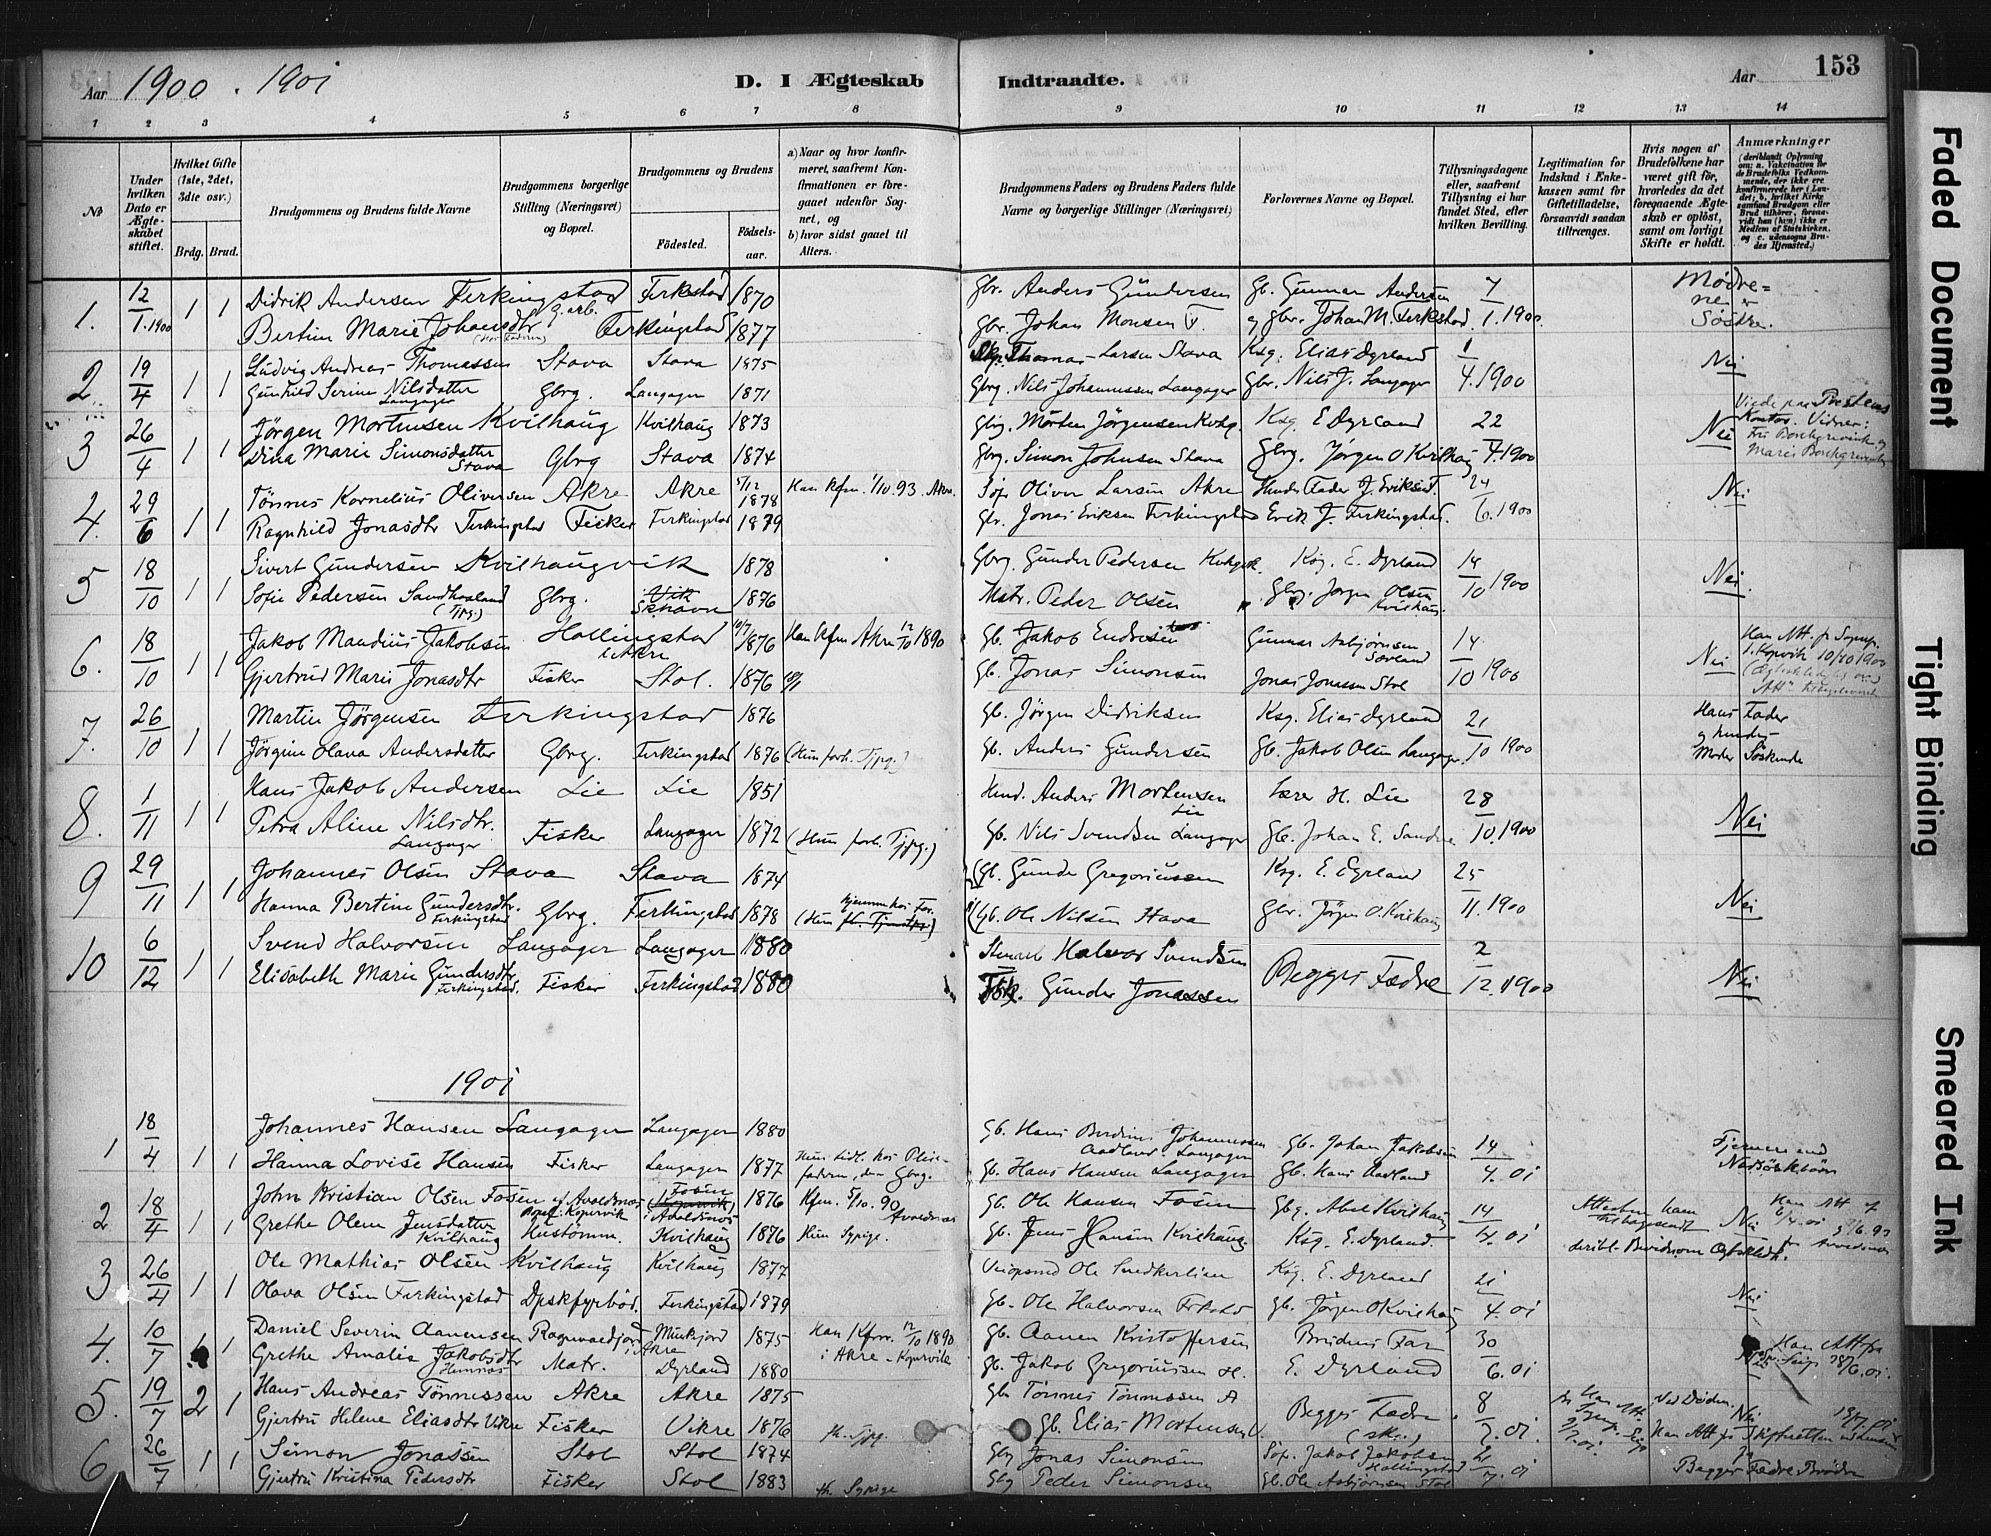 Aar 1900 . 1901
D. I Ægteskab Indtraadte.
Aar 153
1 2 3 4 5 6 7 8 9 10 11 12 13 14
No
Under hvilken Dato er Ægteskabet stiftet.
Hvilket Gifte (1ste, 2det, 3die osv.)
Brdg. Brud.
Brudgommens og Brudens fulde Navne
Brudgommens borgerlige Stilling (Næringsvei) og Bopæl.
Brudgommens og Brudens
Födested.
Födselsaar.
a) Naar og hvor konfirmeret, saafremt Konfirmationen er foregaaet udenfor Sognet, og
b) hvor sidst gaaet til Alters.
Brudgommens Faders og Brudens Faders fulde Navne og borgerlige Stillinger (Næringsvei)
Forlovernes Navne og Bopæl.
Tillysningsdagene eller, saafremt Tillysning ei har fundet Sted, efter hvilken Bevilling.
Legitimation for Indskud i Enkekassen samt for Giftetilladelse, forsaavidt saadan tiltrænges.
Hvis nogen af Brudefolkene har været gift för, hvorledes da det foregaaende Ægteskab er oplöst, samt om lovligt Skifte er holdt.
Anmærkninger
(deriblandt Oplysning om: a. Vakcination for de Brudefolks Vedkommende, der ikke ere konfirmerede her i Landet; b. hvilket Kirkesamfund Brudgom eller Brud tilhörer, forsaavidt han (hun) ikke er Medlem af Statskirken, og c. udensogns Brudes Hjemsted.)
1. 12/1.1900 1 1 Didrik Andersen Ferkingstad G.arb. Ferkstad 1870 Gbr. Anders Gundersen Gb. Gunnar Andersen 7 Mødrene er Søstre.
Bertine Marie Johansdtr Ferkingstad 1877 Gbr. Johan Monsen F. og Gbr. Johan M. Ferkstad 1.1900.
2 19/4 1 1 Ludvig Andreas Thomassen Stava Stava 1875 Thomas Larsen Stava Ksg. Elias Dyrland 1 Nei
Gunhild Serine Nilsdatter Langager Gbrg. Langager 1871 Gbrg. Nils Johannessen Langager Gbr. Nils J. Langager 4.1900
3 26/4 1 1 Jörgen Mortensen Kvilhaug Kvilhaug 1873 Gbrg. Morten Jörgensen Kvhg. Ksg. E Dyrland 22 Nei
Dina Marie Simonsdatter Stava Gbrg Stava 1874 Gbrg. Simon Johnsen Stava Gbrg. Jörgen O Kvilhaug 4.1900
Viede paa Prestens Kontor. Vidner: Fru Borchgrevink og Marie Borchgrevink
4. 29/6 1 1 Tönnes Kornelius Oliversen Akre Akre 5/12 1878 Han kfm. 1/10.93. Akre. Oliver Larsen Akre Hendes Fader J. Eriksen F. 24 Nei
Ragnhild Jonasdtr Ferkingstad Fisker Ferkingstad 1879 Gbr. Jonas Eriksen Ferkingstad Erik J. Ferkingstad. 6.1900
5 18/10 1 1 Sivert Gundersen Kvilhaugvik 1878 Gbrg. Gunder Pedersen Kvhgvik. Ksg. E. Dyrland 14 Nei
Sofie Pedersen Sandhaaland (Tjpg.) Gbrg. Vik Skhavn 1876 Matr. Peder Olsen Gbrg. Jorgen Olsen Kvilhaug. 10 1900
6. 18/10 1 1 Jakob Mandius Jakobsen Hollingstad i Akre 10/7 1876 Han kfm Akre 12/10 1890 Gb. Jakob Endresen Gunnar Asbjörnsen Sævland 14 Nei
Gjertrud Marie Jonasdtr Fisker Stol. 1876 Gb. Jonas Simonsen Jonas Jonassen Stol 10 1900
Han Att. fr Sogneprest i Kopervik 10/10 1900
7. 26/10 1 1 Martin Jörgensen Ferkingstad 1876 Gb. Jörgen Didriksen Ksg. Elias Dyrland 21 Hans Fader og hendes Moder Söskende
Jörgine Olava Andersdatter Gbrg. Ferkingstad 1876 (Hun forh. Tjpg.) Gb. Anders Gundersen Gb. Jakob Olsen Langager. 10 1900
8. 1/11 1 1 Hans Jakob Andersen Lie Lie 1851 Hmd. Anders Mortensen Lie Lærer H. Lie 28 Nei
Petra Aline Nilsdtr. Langager Fisker Langager 1872 (Hun forh. Tjpg.) Gb. Nils Svendsen Langager Gb. Johan E. Sandve 10.1900
9 29/11 1 1 Johannes Olsen Stava Stava 1874 Gb. Gunder Gregoriussen Ksg. E. Dyrland 25 Nei
Hanna Bertine Gundersdtr. Ferkingstad Gbrg. Ferkingstad 1878 (Hun hjemme hos For.) Gb. Ole Nilsen Stava Gbr. Jörgen O. Kvilhaug 11.1900
10 6/12 1 1 Svend Halvorsen Langager Langager 1880 Halvor Svendsen Begges Fædre 2 Nei
Elisabeth Marie Gundersdtr. Ferkingstad. Fisker Ferkingstad 1880 Gunder Jonassen 12.1900
1901
1 18/4 1 1 Johannes Hansen Langager Langager 1880 Gb. Hans Berdines Johannessen Langager Gb. Johan Jakobsen 14
Hanna Lovise Hansen Fisker Langager 1877 Gb. Hans Hansen Langager Gb. Hans Aadland 4.01
Fjermenend Nedsöskbörn
2. 18/4 1 1 John Kristian Olsen Fosen af Avaldsnes Fosen i Avaldsnes 1876 Kfm. 5/10.90 Avaldsnes Gb. Ole Hansen Fosen Gbg. Abel Kvilhaug 14 Nei
Grethe Oleine Jensdatter Kvilhaug Hustömm. Kvilhaug 1876 Hun Sypige. Gb. Jens Hansen Kvilhaug Ksg. E. Dyrland. 4.01
3 26/4 1 1 Ole Mathias Olsen Kvilhaug Kvilhaug 1877 Ksg. E. Dyrland 21 Nei
Olava Olsen Ferkingstad Ferkingstad 1879 Gb. Ole Halvorsen Frkstd Gb. Jörgen O Kvilhaug 4.01
4. 10/7 1 Daniel Severin Aanensen Ragnvaldsjord i Akre Munkjord 1875 Han Kfm. 12/10 1890 i Akre - Kopervik Gb. Aanen Kristoffersen Brudens Far 30
Grethe Amalia Jakobsdtr Hemnes Matr. Dyrland 1880 Gb. Jakob Gregoriussen H. E. Dyrland 6.01
Han Att fra 28/6.01.
5. 19/7 2 1 Hans Andreas Tönnessen Akre Akre 1875 Gb. Tönnes Tönnessen A Begges Fædre 8 Ved Döden. Nei
Gjertru Helene Eliasdtr Vikre Fisker Vikre 1876 fh. Tjpg. Gb. Elias Mortensen V. (skr.) 7.01.
Han Att fr Skifteretten
6 26/7 1 1 Simon Jonassen Stol Stol 1874 Gbg Jonas Simonsen Jakob Jakobsen Hollingstad
Gjertru Kristina Pedersdtr Fisker Stol 1883 fh. Sypige Gbg Peder Simonsen Gb. Ole Asbjörnsen Stol 7.01 Begges Fædre Brödre
Faded Document
Tight Binding
Smeared Ink